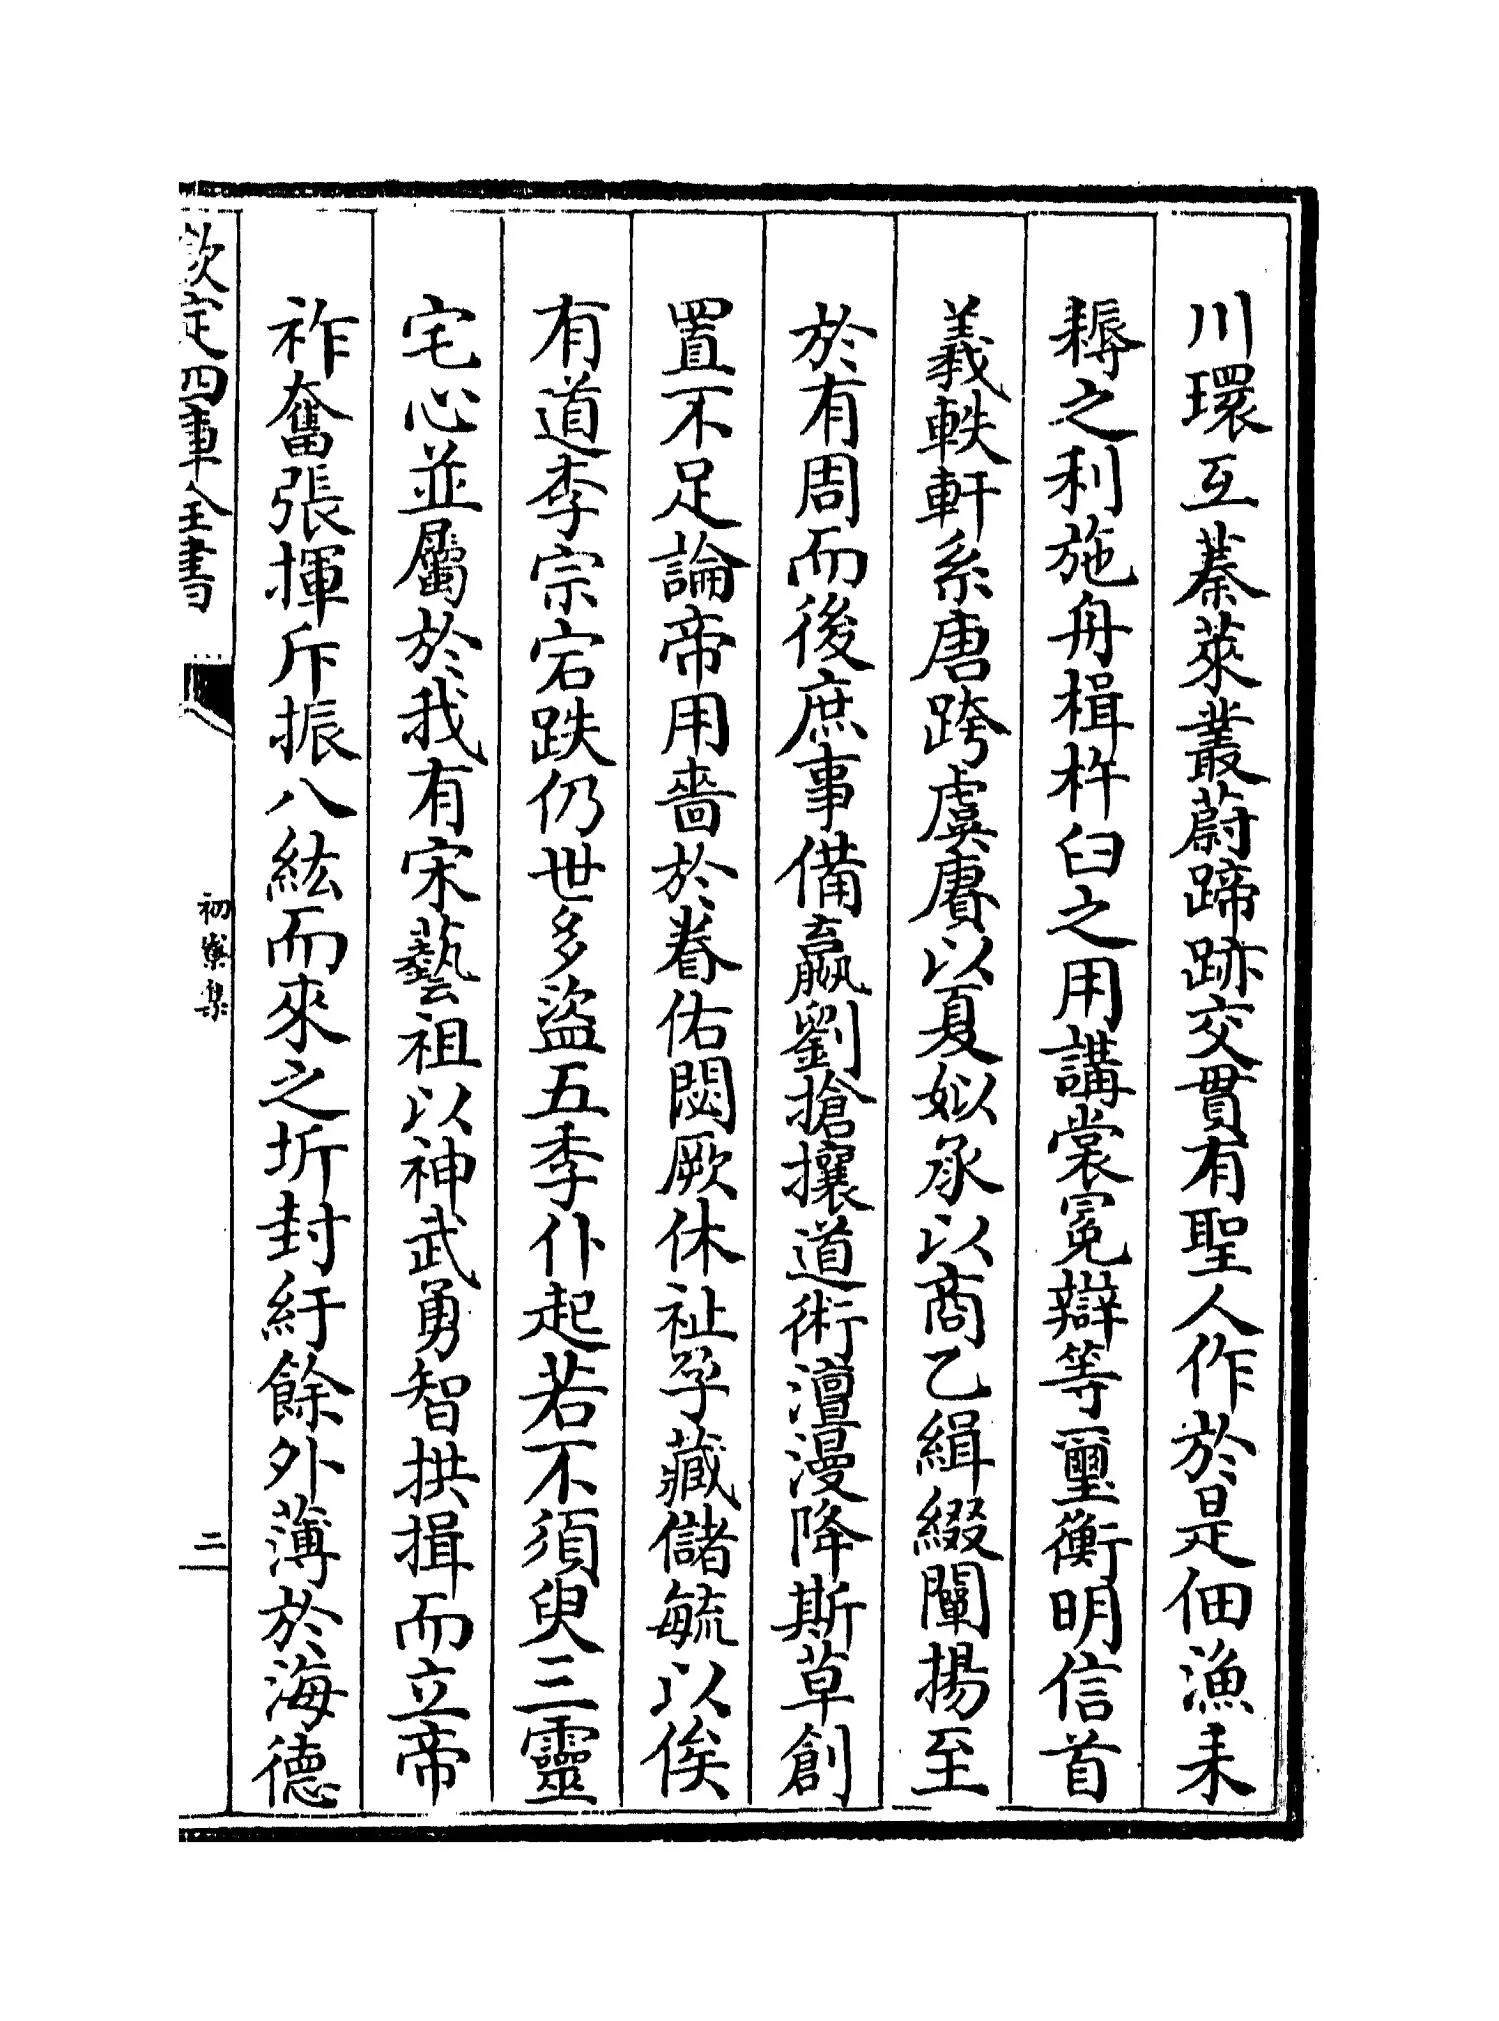 川環互蓁萊叢蔚蹄跡交貫有聖人作於是佃漁耒
耨之利施舟楫杵臼之用講裳冕辯等璽衡明信首
義軼軒系唐跨虞賡以夏姒承以商乙緝綴闡揚至
於有周而後庶事備嬴劉搶攘道術澶漫降斯草創
置不足論帝用嗇於眷佑閟厥休祉孕藏儲毓以俟
有道李宗宕跌仍世多盜五季仆起若不須臾三靈
宅心並屬於我有宋藝祖以神武勇智拱揖而立帝
祚奮張揮斥振八紘而來之圻封紆餘外薄於海德
欽定四庫全書
初寮集
二